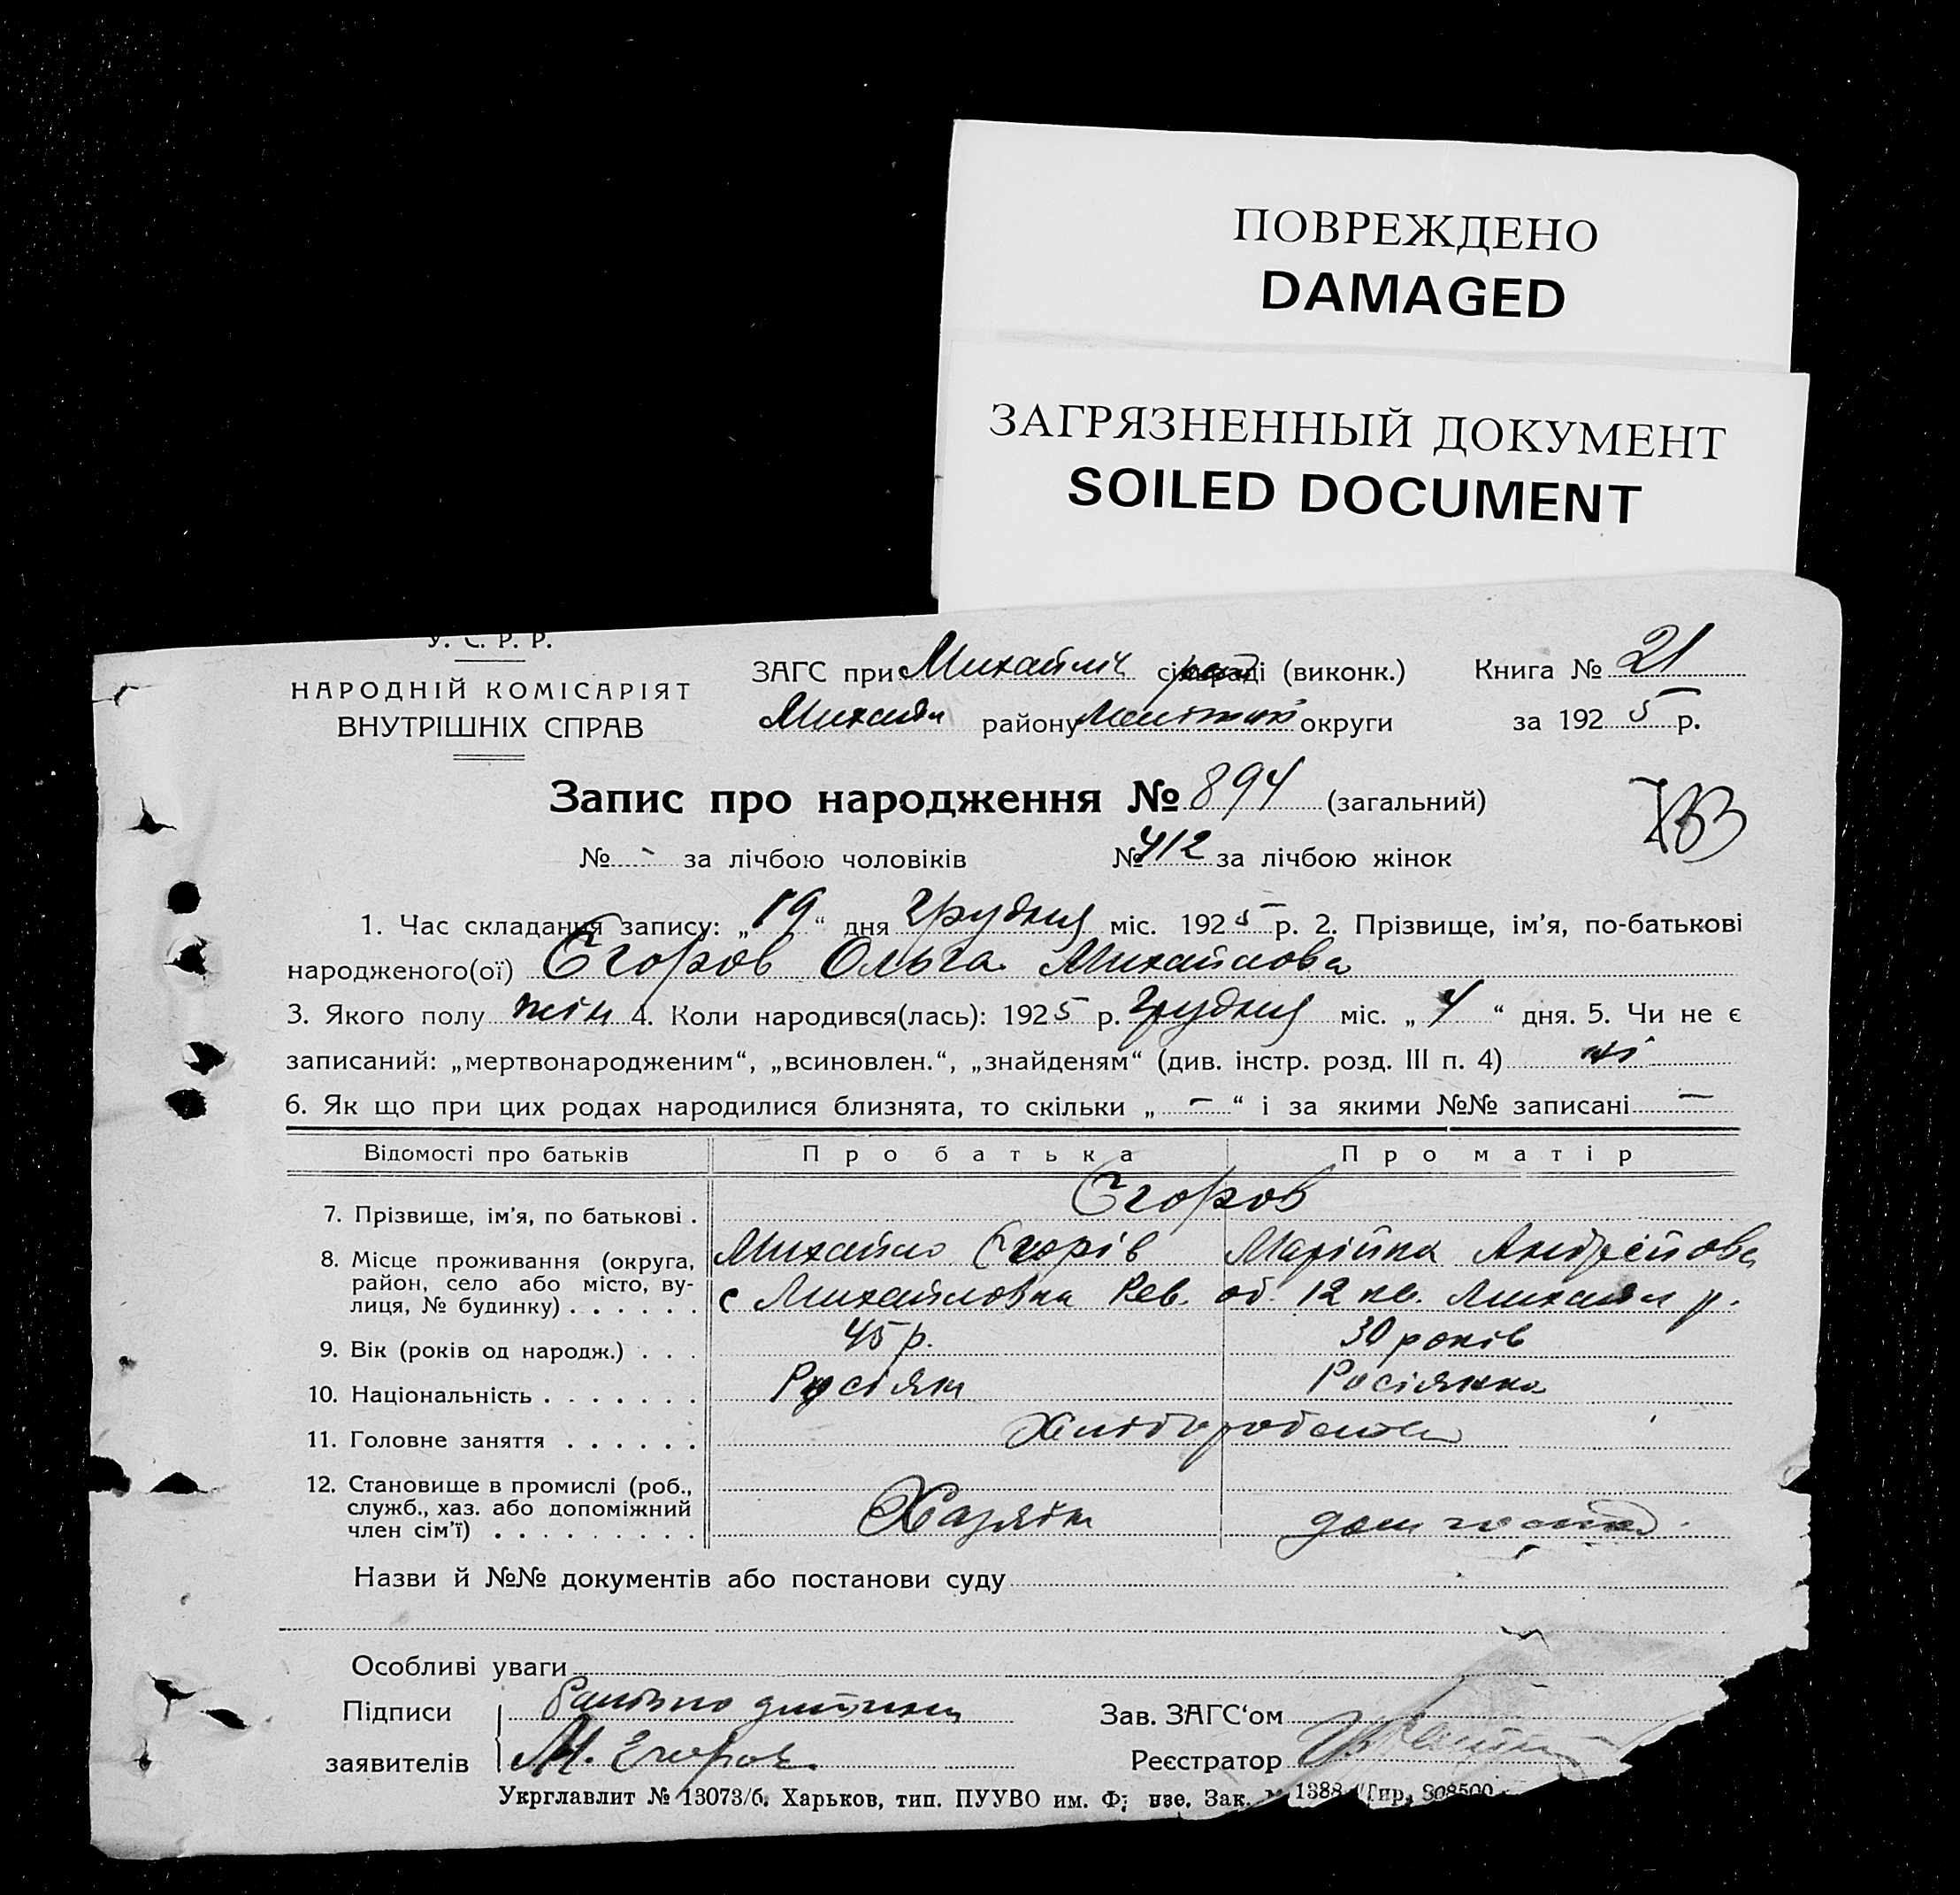 ПОВРЕЖДЕНО
DAMAGED
ЗАГРЯЗНЕННЫЙ ДОКУМЕНТ
SOILED DOCUMENT
У. С. Р. Р.
НАРОДНІЙ КОМІСАРІЯТ
ВНУТРІШНІХ СПРАВ
ЗАГС при Михайлів сільраді (виконк.) Книга № 21
Михайл району округи за 1925 р.
Запис про народження № 894 (загальний)
783
№ - за лічбою чоловіків № 412 за лічбою жінок
1. Час складання запису: „19“ дня грудня міс. 1925 р. 2. Прізвище, ім’я, по-батькові
народженого(ої) Єгоров Ольга Михайлова
3. Якого полу жін 4. Коли народився(лась): 1925 р. грудня міс. „4“ дня. 5. Чи не є
записаний: „мертвонародженим“, „всиновлен.“, „знайденям“ (див. інстр. розд. III п. 4) ні
6. Як що при цих родах народилися близнята, то скільки „ — “ і за якими №№ записані —
Відомості про батьків Про батька Про матір
7. Прізвище, ім’я, по батькові . Єгоров
Михайло Єгорів Марійка Андрейова
8. Місце проживання (округа,
район, село або місто, ву-
лиця, № будинку) . . . . . . с Михайловка Рев. об. 12 кв. Михайл р.
9. Вік (років од народж.) . . . 45 р. 30 років
10. Національність . . . . . . . Росіян Росіянка
11. Головне заняття . . . . . . Хліборобство
12. Становище в промислі (роб.,
служб., хаз. або допоміжний
член сім’ї) . . . . . . . . . Хазяїн дом господ.
Назви й №№ документів або постанови суду
Особливі уваги
Підписи батько дитини Зав. ЗАГС‘ом
заявителів М. Егоров. Реєстратор
Укрглавлит № 13073/б. Харьков, тип. ПУУВО им. Ф; нзе. Зак. 1388 Тир. 808500